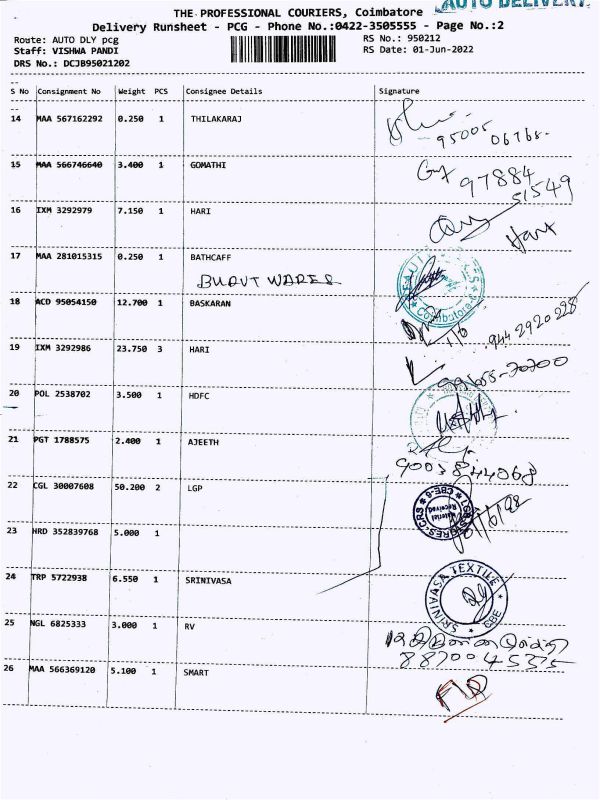 THE PROFESSIONAL COURIERS, Coimbatore
AUTO DELIVERY
Delivery Runsheet - PCG - Phone No.:0422-3505555 - Page No.:2
Route: AUTO DLY pcg RS No.: 950212
Staff: VISHWA PANDI RS Date: 01-Jun-2022
DRS No.: DCJB95021202
S No Consignment No Weight PCS Consignee Details Signature
14 MAA 567162292 0.250 1 THILAKARAJ
95005 06768-
15 MAA 566746640 3.400 1 GOMATHI
97884
51549
16 IXM 3292979 7.150 1 HARI
Hari
17 MAA 281015315 0.250 1 BATHCAFF
18 ACD 95054150 12.700 1 BASKARAN
Coimbatore
944 2920 228
19 IXM 3292986 23.750 3 HARI
20 POL 2538702 3.500 1 HDFC
21 PGT 1788575 2.400 1 AJEETH
9003844068
22 CGL 30007608 50.200 2 LGP
Material
Received
CBE-6
23 HRD 352839768 5.000 1
24 TRP 5722938 6.550 1 SRINIVASA
SRINIVASA TEXTILE
CBE
25 NGL 6825333 3.000 1 RV
8870045375
26 MAA 566369120 5.100 1 SMART